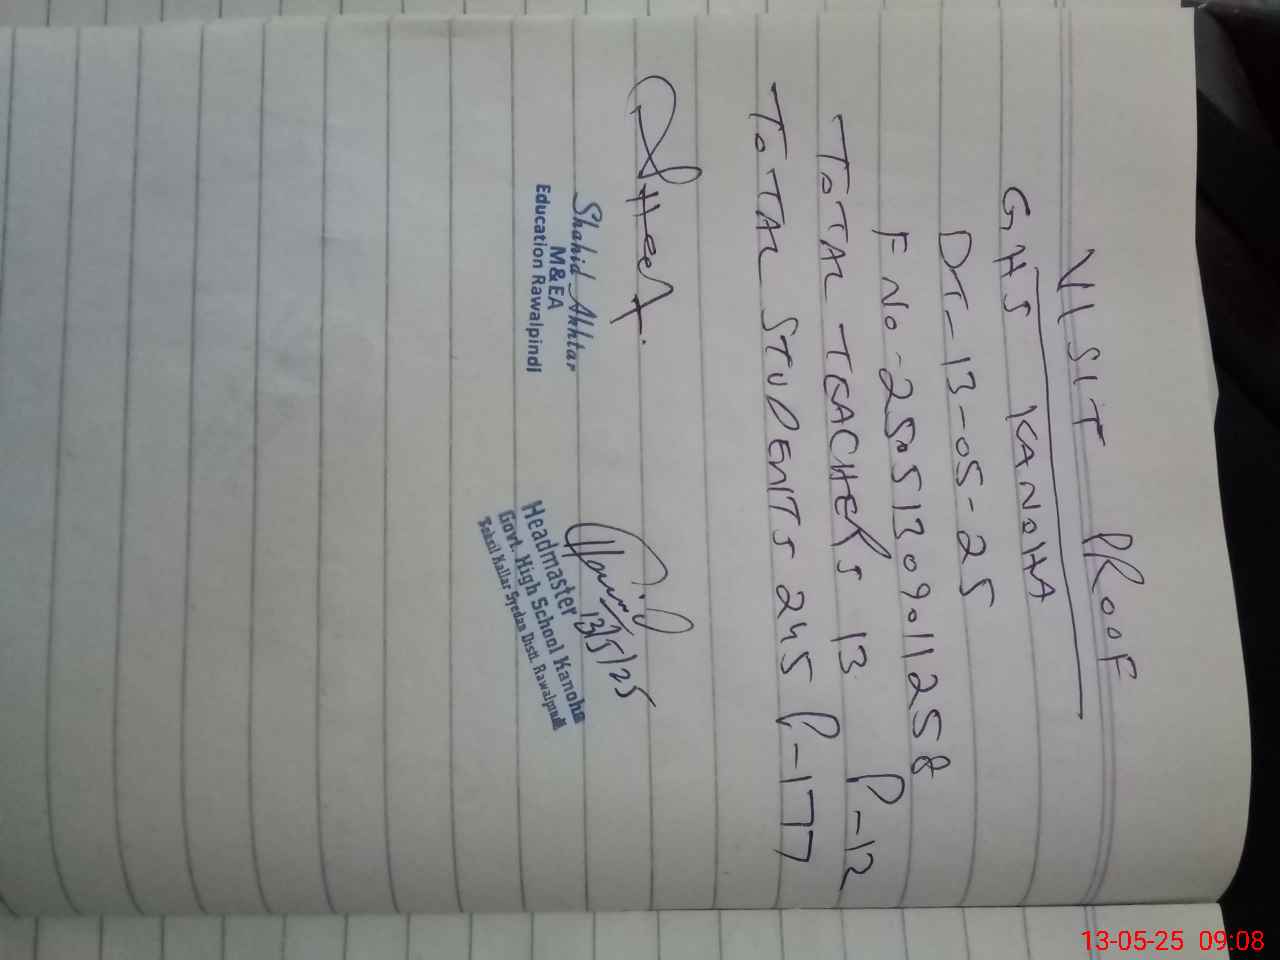 VISIT PROOF
GHS KANOHA
DT-13-05-25
F No-25051309011258
TOTAL TEACHERS 13 P-12
TOTAL STUDENTS 245 P-177
Shahid Akhtar
M&EA
Education Rawalpindi
13/5/25
Headmaster
Govt. High School Kanoha
Tehsil Kallar Syedan Distt. Rawalpindi
13-05-25 09:08